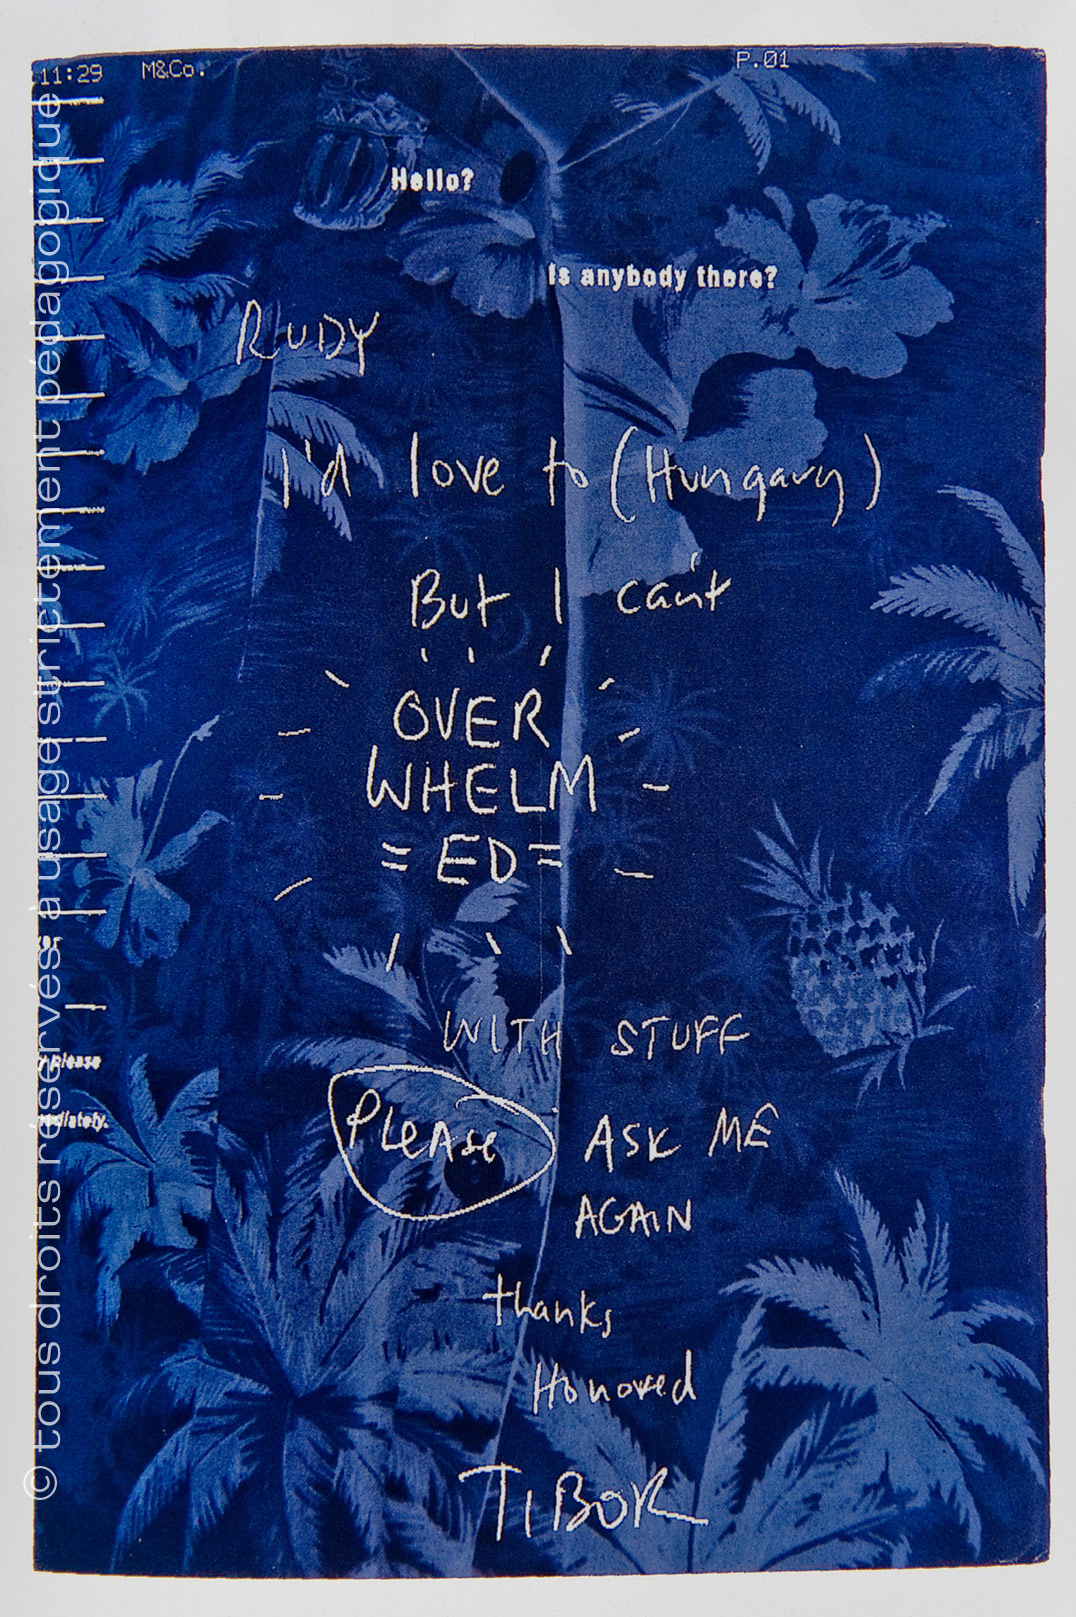 11:29 M&Co. P.01
Hello?
Is anybody there?
RUDY
I'd love to (Hungary)
But I can't
OVER
WHELM
ED
WITH STUFF
PLEASE ASK ME
AGAIN
thanks
Honored
TIBOR
please
© tous droits réservés, à usage strictement pédagogique